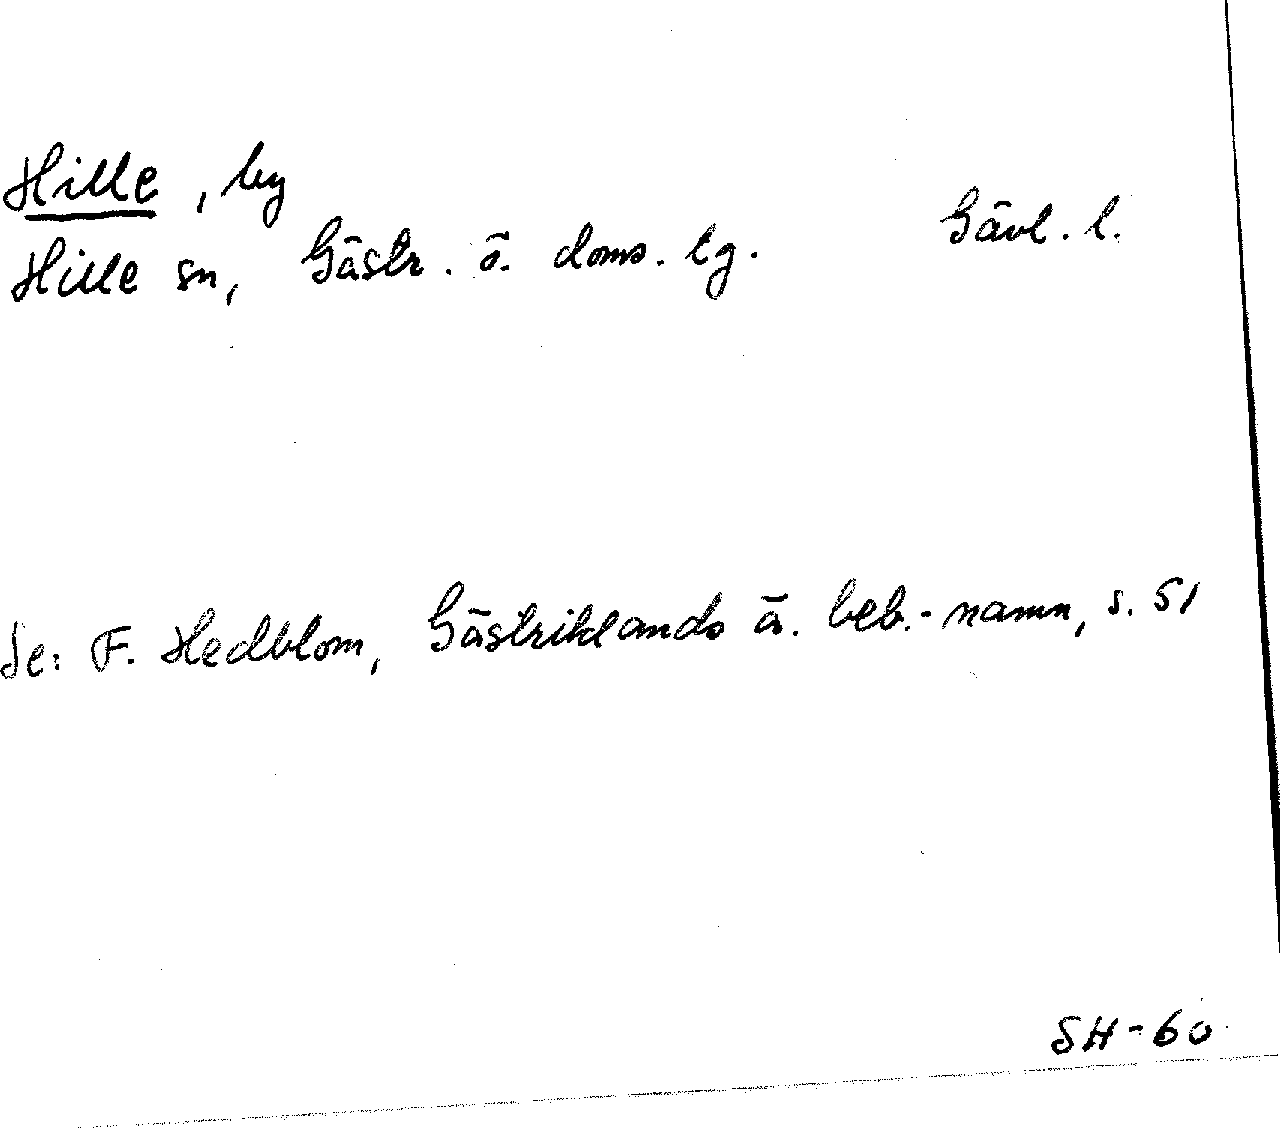 Hille, by
Hille sn, Gästr. ö. doms. tg. Gävl. l.
Se: F. Hedblom, Gästriklands ä. beb.-namn, s. 51
SH-60